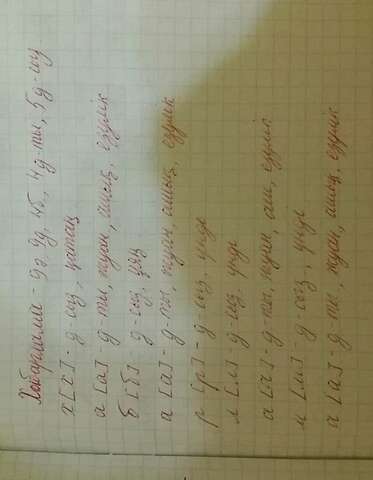 Хабарлама - 9ә, 9д, 4б, 4 д-ты, 5 д-сыз
х [х] - д-сыз, қатаң
а [а] д-ты, жуан, ашық, езулік
б [б] - д-сыз, ұяң
а [а] - д-ты, жуан, ашық, езулік
р [р] - д-сыз, үнді
л [л] - д-сыз, үнді
а [а] - д-ты, жуан, аш, езулік
м [м] - д-сыз, үнді
а [а] - д-ты, жуан, ашық, езулік